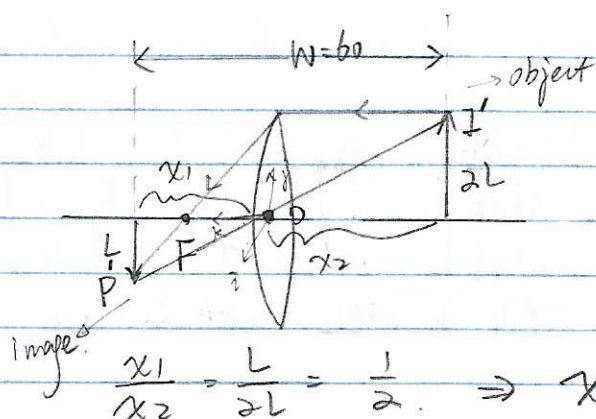 W=60
object
I'
x1
2L
F
O
L
x2
P
image.
x1/x2 = L/2L = 1/2. ⇒ x